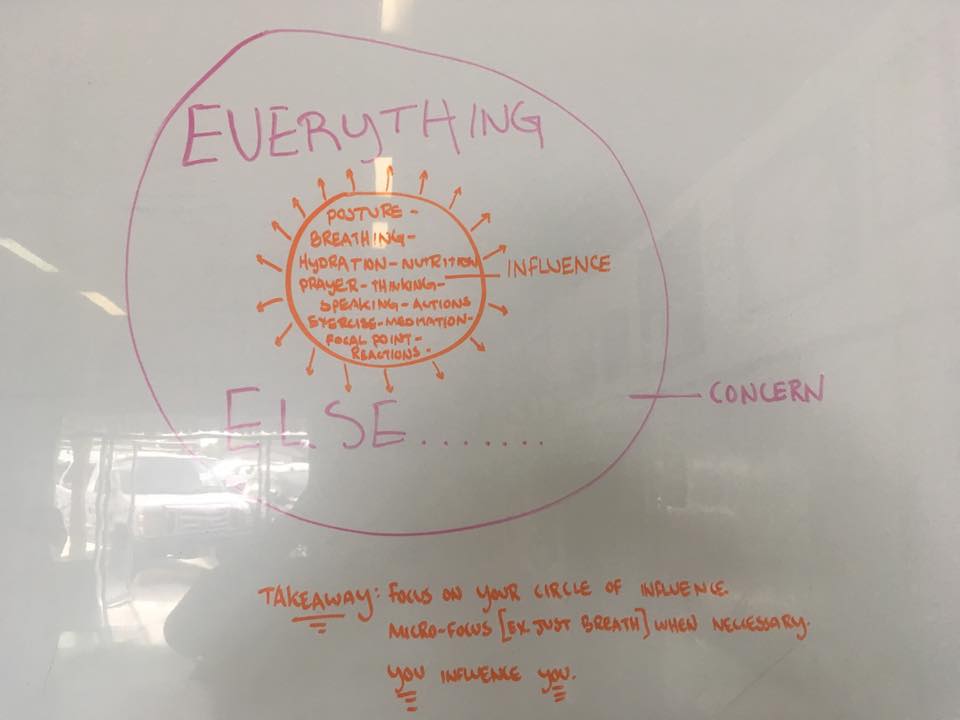 EVERYTHING
POSTURE -
BREATHING -
HYDRATION - NUTRITION
PRAYER - THINKING -
SPEAKING - ACTIONS
EXERCISE - MEDITATION -
FOCAL POINT -
REACTIONS -
INFLUENCE
ELSE.......
CONCERN
TAKEAWAY: FOCUS ON YOUR CIRCLE OF INFLUENCE.
MICRO-FOCUS [EX. JUST BREATH] WHEN NECESSARY.
YOU INFLUENCE YOU.